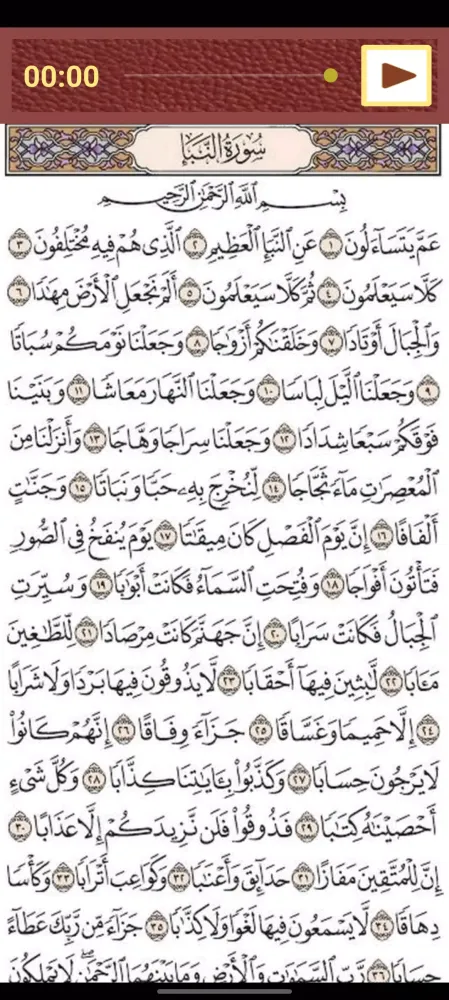 00:00
سُورَةُ النَّبَإِ
بِسْمِ اللَّهِ الرَّحْمَٰنِ الرَّحِيمِ
عَمَّ يَتَسَآءَلُونَ ١ عَنِ النَّبَإِ الْعَظِيمِ ٢ الَّذِى هُمْ فِيهِ مُخْتَلِفُونَ ٣
كَلَّا سَيَعْلَمُونَ ٤ ثُمَّ كَلَّا سَيَعْلَمُونَ ٥ أَلَمْ نَجْعَلِ الْأَرْضَ مِهَٰدًا ٦
وَالْجِبَالَ أَوْتَادًا ٧ وَخَلَقْنَٰكُمْ أَزْوَٰجًا ٨ وَجَعَلْنَا نَوْمَكُمْ سُبَاتًا
٩ وَجَعَلْنَا الَّيْلَ لِبَاسًا ١٠ وَجَعَلْنَا النَّهَارَ مَعَاشًا ١١ وَبَنَيْنَا
فَوْقَكُمْ سَبْعًا شِدَادًا ١٢ وَجَعَلْنَا سِرَاجًا وَهَّاجًا ١٣ وَأَنزَلْنَا مِنَ
الْمُعْصِرَٰتِ مَآءً ثَجَّاجًا ١٤ لِّنُخْرِجَ بِهِۦ حَبًّا وَنَبَاتًا ١٥ وَجَنَّٰتٍ
أَلْفَافًا ١٦ إِنَّ يَوْمَ الْفَصْلِ كَانَ مِيقَٰتًا ١٧ يَوْمَ يُنفَخُ فِى الصُّورِ
فَتَأْتُونَ أَفْوَاجًا ١٨ وَفُتِحَتِ السَّمَآءُ فَكَانَتْ أَبْوَٰبًا ١٩ وَسُيِّرَتِ
الْجِبَالُ فَكَانَتْ سَرَابًا ٢٠ إِنَّ جَهَنَّمَ كَانَتْ مِرْصَادًا ٢١ لِّلطَّٰغِينَ
مَـَٔابًا ٢٢ لَّٰبِثِينَ فِيهَآ أَحْقَابًا ٢٣ لَّا يَذُوقُونَ فِيهَا بَرْدًا وَلَا شَرَابًا
٢٤ إِلَّا حَمِيمًا وَغَسَّاقًا ٢٥ جَزَآءً وِفَاقًا ٢٦ إِنَّهُمْ كَانُوا۟
لَا يَرْجُونَ حِسَابًا ٢٧ وَكَذَّبُوا۟ بِـَٔايَٰتِنَا كِذَّابًا ٢٨ وَكُلَّ شَىْءٍ
أَحْصَيْنَٰهُ كِتَٰبًا ٢٩ فَذُوقُوا۟ فَلَن نَّزِيدَكُمْ إِلَّا عَذَابًا ٣٠
إِنَّ لِلْمُتَّقِينَ مَفَازًا ٣١ حَدَآئِقَ وَأَعْنَٰبًا ٣٢ وَكَوَاعِبَ أَتْرَابًا ٣٣ وَكَأْسًا
دِهَاقًا ٣٤ لَّا يَسْمَعُونَ فِيهَا لَغْوًا وَلَا كِذَّٰبًا ٣٥ جَزَآءً مِّن رَّبِّكَ عَطَآءً
حِسَابًا ٣٦ رَّبِّ السَّمَٰوَٰتِ وَالْأَرْضِ وَمَا بَيْنَهُمَا الرَّحْمَٰنِ ۖ لَا يَمْلِكُونَ